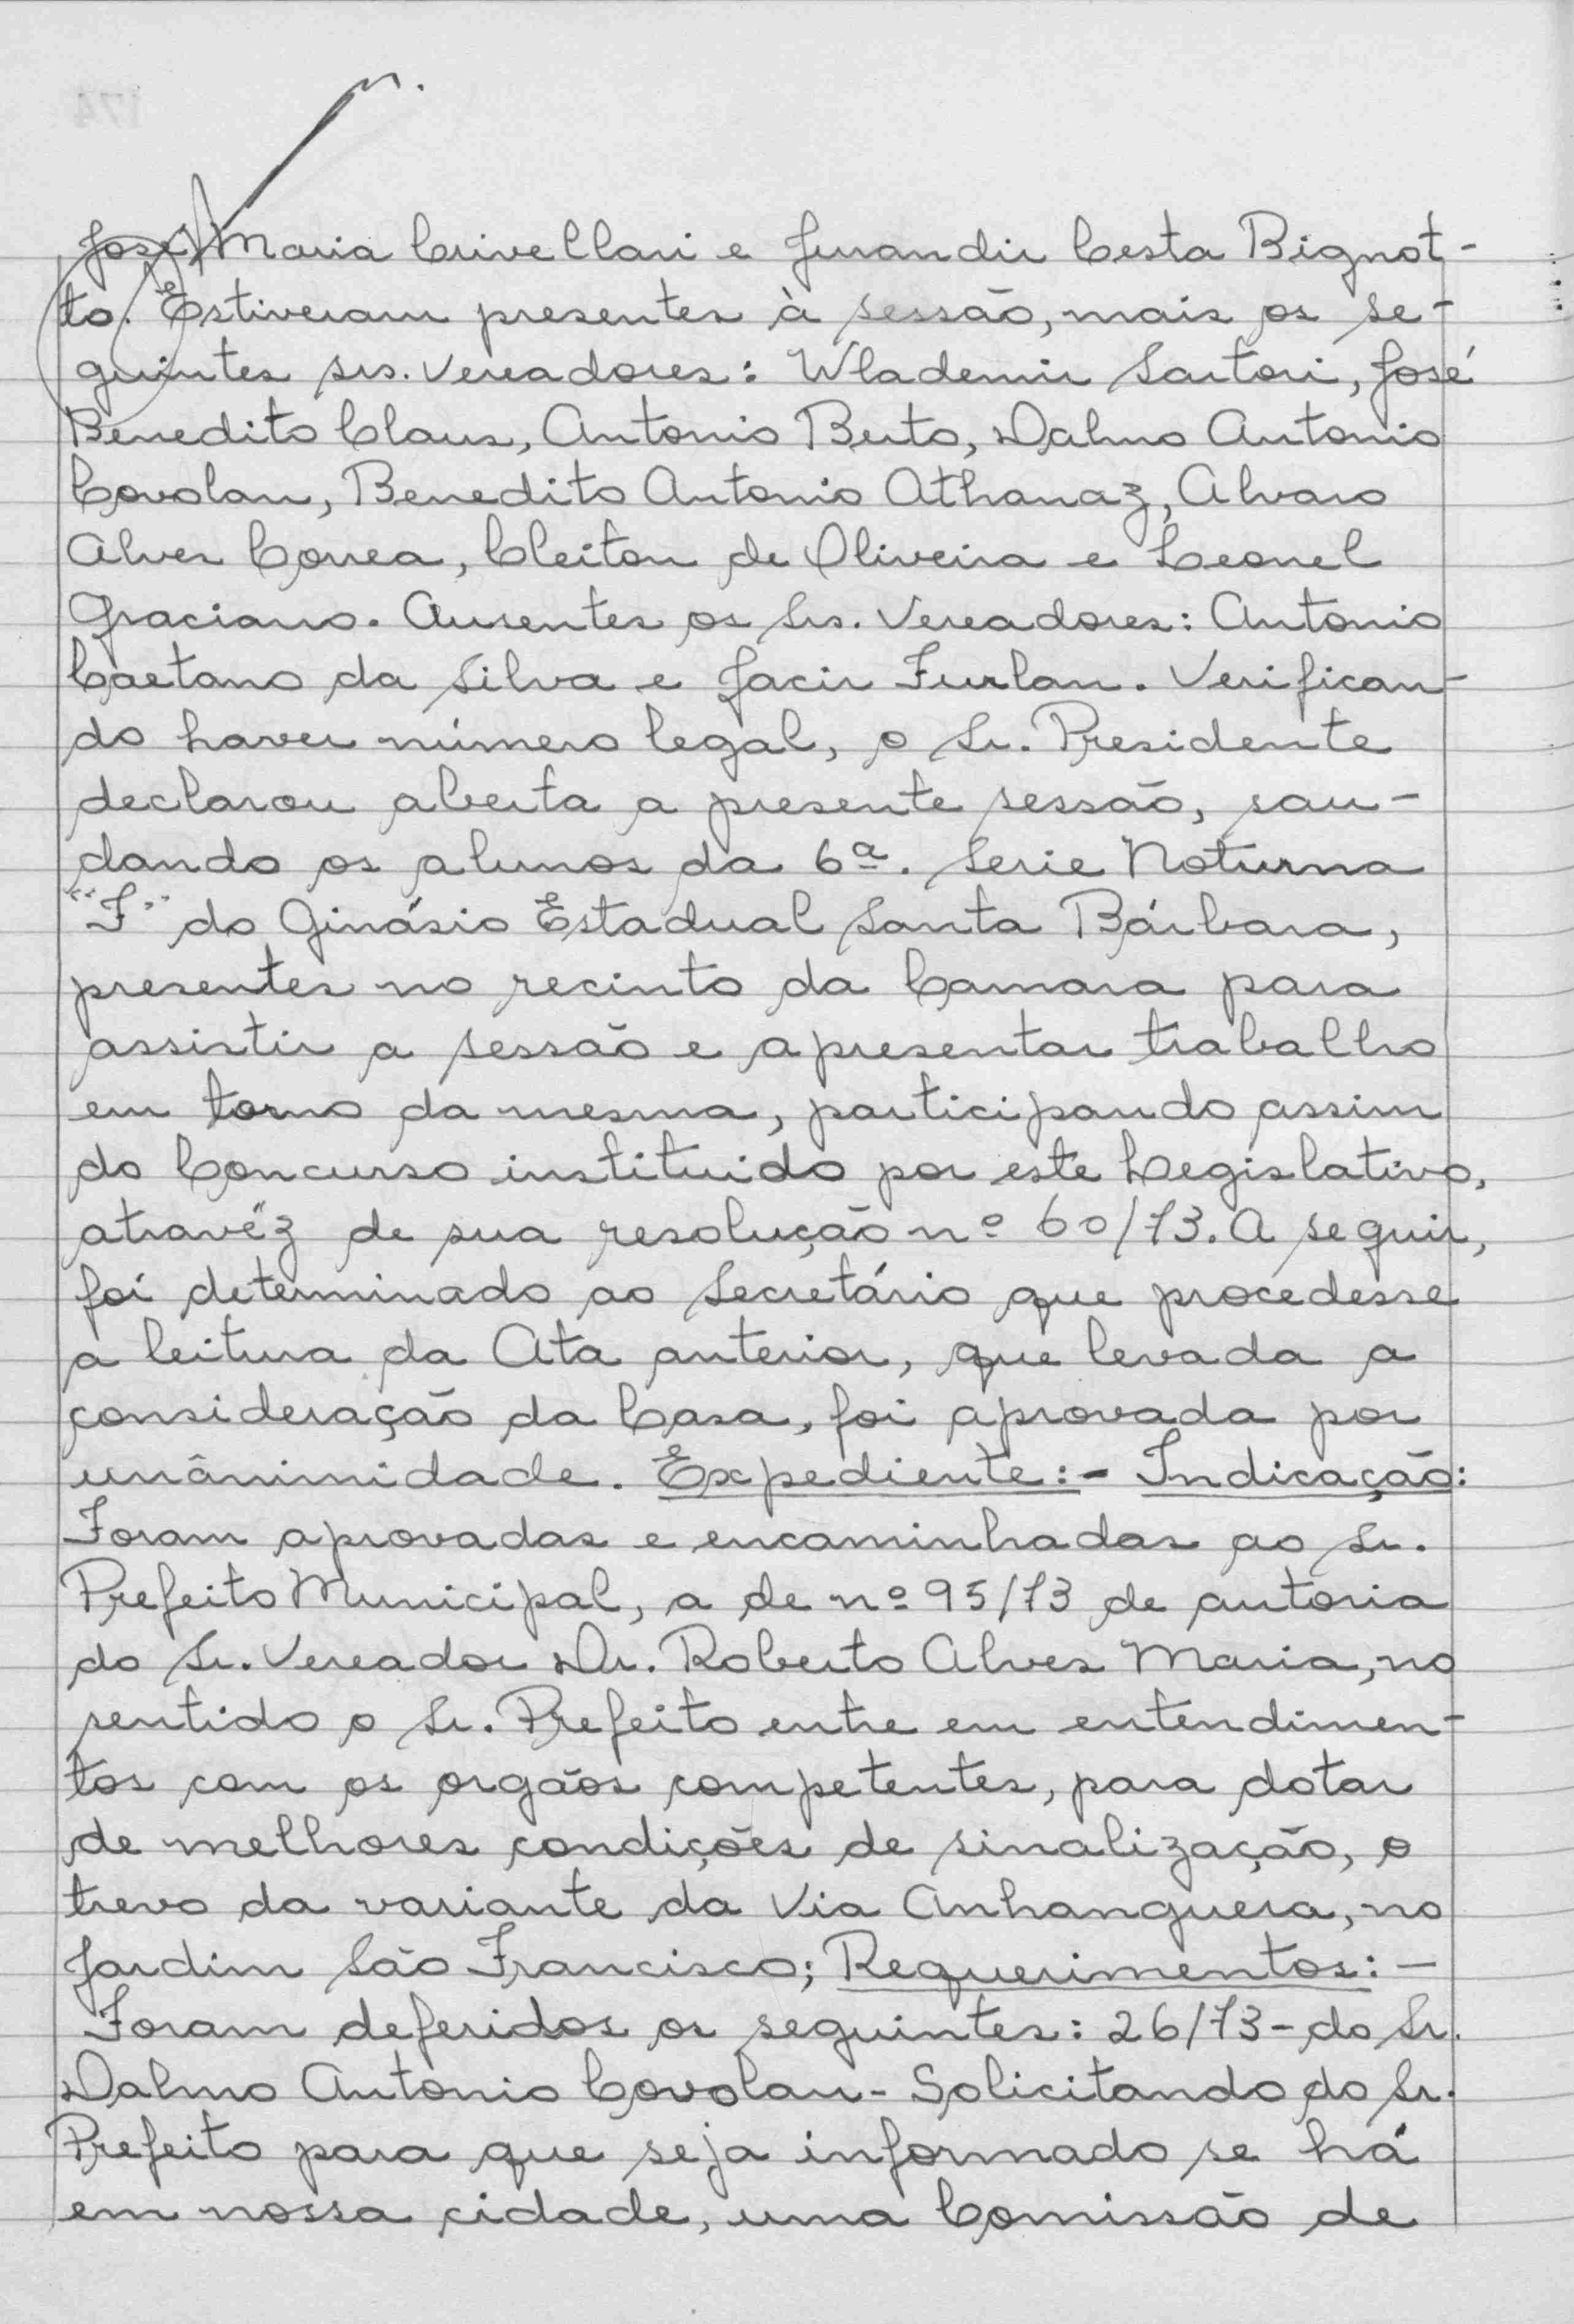 José Maria Crivellari e Jurandir Cesta Bignot-
to. Estiveram presentes à sessão, mais os se-
guintes srs. Vereadores: Wlademir Sartori, José
Benedito Claus, Antonio Berto, Dalmo Antonio
Covolan, Benedito Antonio Athanaz, Alvaro
Alves Correa, Cleiton de Oliveira e Leonel
Graciano. Ausentes os Srs. Vereadores: Antonio
Caetano da Silva e Jacir Furlan. Verifican-
do haver número legal, o Sr. Presidente
declarou aberta a presente sessão, sau-
dando os alunos da 6ª. Serie Noturna
"F" do Ginásio Estadual Santa Bárbara,
presentes no recinto da Camara para
assistir a sessão e apresentar trabalho
em torno da mesma, participando assim
do Concurso instituido por este Legislativo,
atravéz de sua resolução nº 60/73. A seguir,
foi determinado ao Secretário que procedesse
a leitura da Ata anterior, que levada a
consideração da Casa, foi aprovada por
unânimidade. Expediente:- Indicação:
Foram aprovadas e encaminhadas ao Sr.
Prefeito Municipal, a de nº 95/73 de autoria
do Sr. Vereador Dr. Roberto Alves Maria, no
sentido o Sr. Prefeito entre em entendimen-
tos com os orgãos competentes, para dotar
de melhores condições de sinalização, o
trevo da variante da Via Anhanguera, no
Jardim São Francisco; Requerimentos:-
Foram deferidos os seguintes: 26/73- do Sr.
Dalmo Antonio Covolan- Solicitando do Sr.
Prefeito para que seja informado se há
em nossa cidade, uma Comissão de